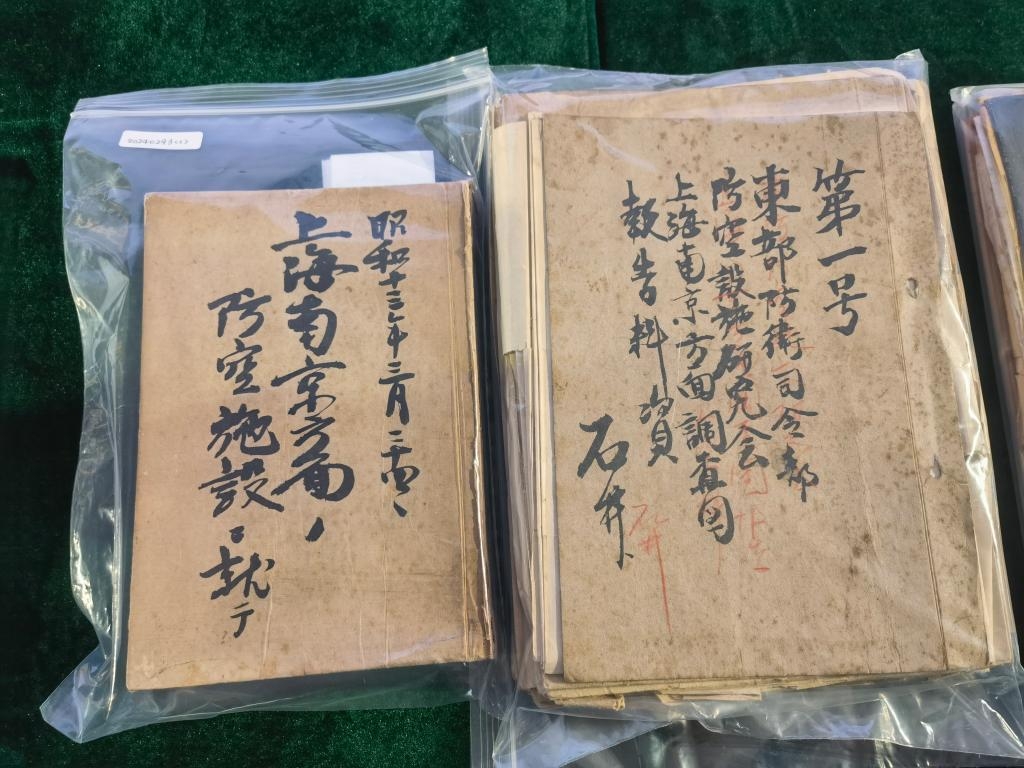 昭和十三年三月二十四日
上海南京方面ノ
防空施設ニ就テ
第一号
東部防衛司令部
防空設施研究会
上海南京方面調査団
報告料資
石井
石井